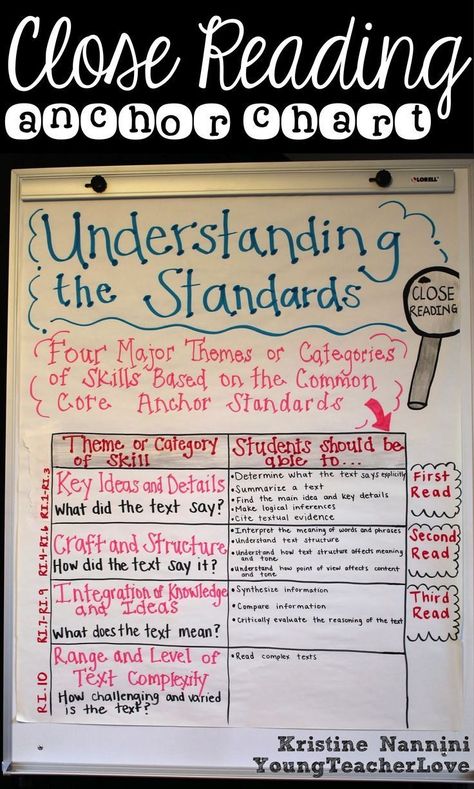 Close Reading
anchor chart
LORELL
Understanding
the Standards
CLOSE
READING
Four Major Themes or Categories
of Skills Based on the Common
Core Anchor Standards
Theme or Category
of Skill
Students should be
able to...
RI.1-RI.3
Key Ideas and Details
What did the text say?
• Determine what the text says explicitly
• Summarize a text
• Find the main idea and key details
• Make logical inferences
• Cite textual evidence
First
Read
RI.4-RI.6
Craft and Structure
How did the text say it?
• Interpret the meaning of words and phrases
• Understand text structure
• Understand how text structure affects meaning
and tone
• Understand how point of view affects content
and tone
Second
Read
RI.7-RI.9
Integration of Knowledge
and Ideas
What does the text mean?
• Synthesize information
• Compare information
• Critically evaluate the reasoning of the text
Third
Read
RI.10
Range and Level of
Text Complexity
How challenging and varied
is the text?
• Read complex texts
Kristine Nannini
YoungTeacherLove